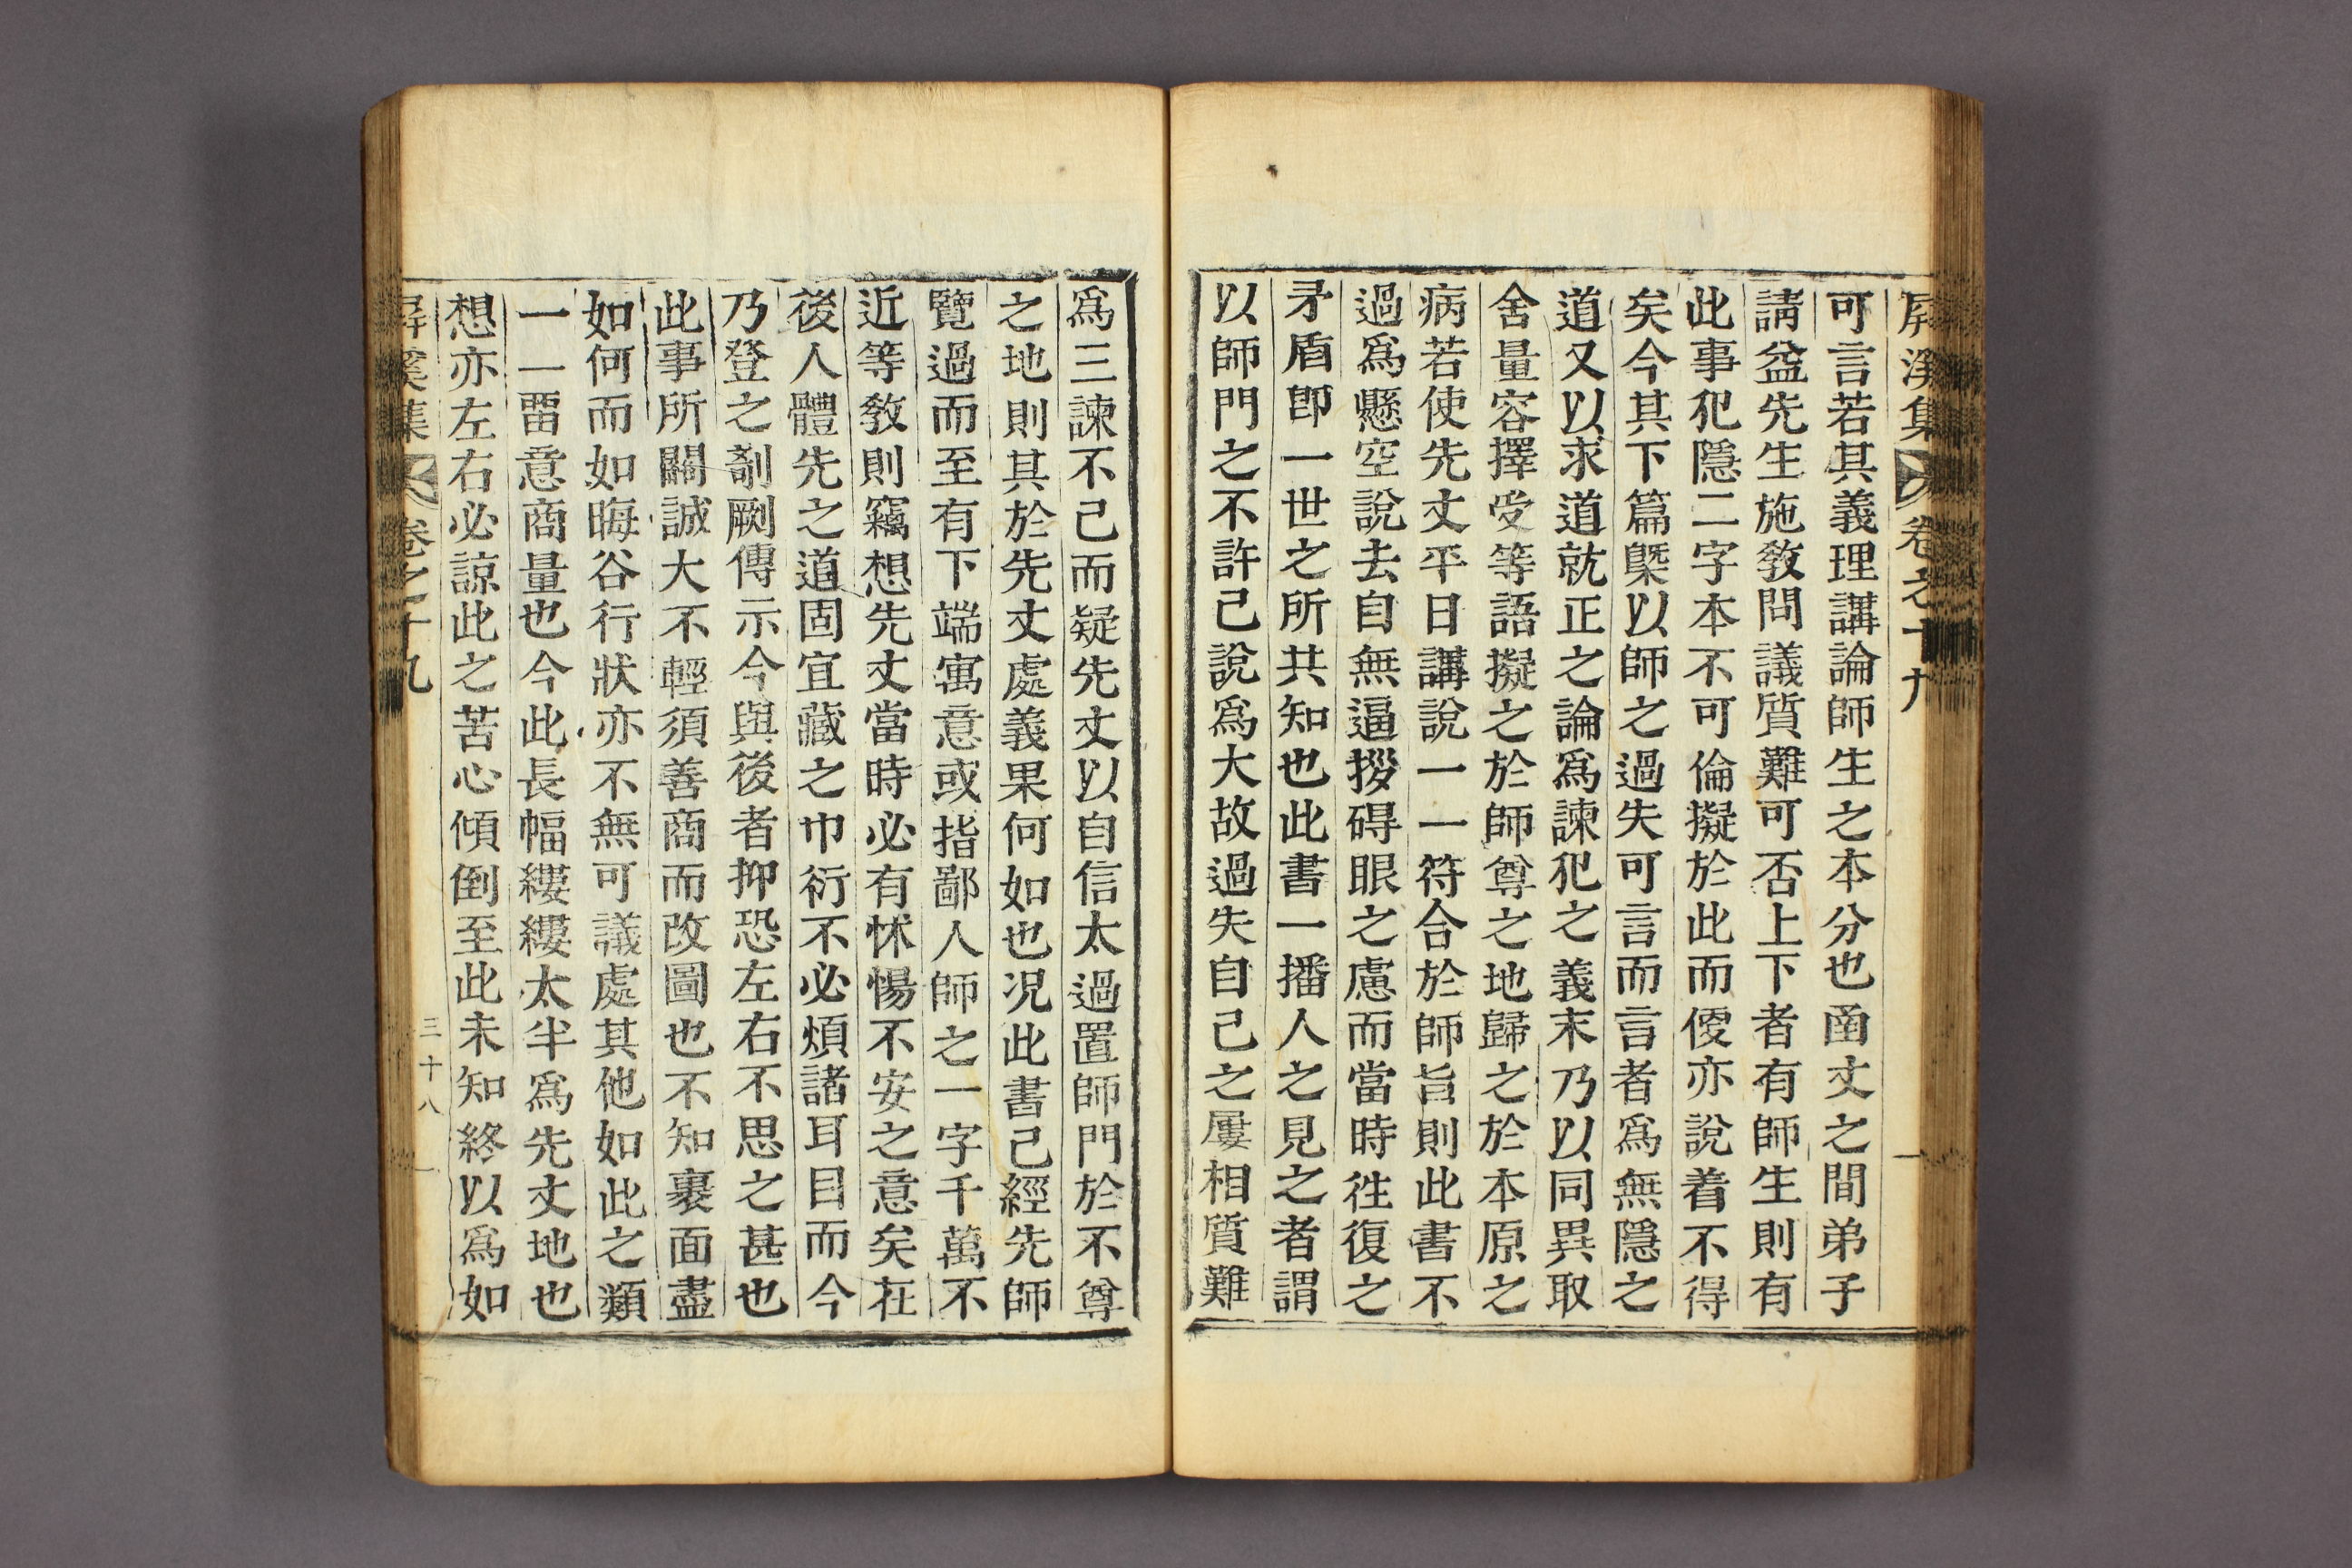 屛溪集 卷之十九
可言若其義理講論師生之本分也函丈之間弟子
請益先生施敎問議質難可否上下者有師生則有
此事犯隱二字本不可倫擬於此而傻亦說着不得
矣今其下篇槩以師之過失可言而言者爲無隱之
道又以求道就正之論爲諫犯之義末乃以同異取
舍量容擇受等語擬之於師尊之地歸之於本原之
病若使先丈平日講說一一符合於師旨則此書不
過爲懸空說去自無逼拶碍眼之慮而當時徃復之
矛盾卽一世之所共知也此書一播人之見之者謂
以師門之不許己說爲大故過失自己之屢相質難
爲三諫不己而疑先丈以自信太過置師門於不尊
之地則其於先丈處義果何如也况此書己經先師
覽過而至有下端寓意或指鄙人師之一字千萬不
近等敎則竊想先丈當時必有怵惕不安之意矣在
後人體先之道固宜藏之巾衍不必煩諸耳目而今
乃登之剞劂傳示今與後者抑恐左右不思之甚也
此事所關誠大不輕須善商而改圖也不知裏面盡
如何而如晦谷行狀亦不無可議處其他如此之類
一一畱意商量也今此長幅縷縷太半爲先丈地也
想亦左右必諒此之苦心傾倒至此未知終以爲如
屛溪集 卷之十九 三十八